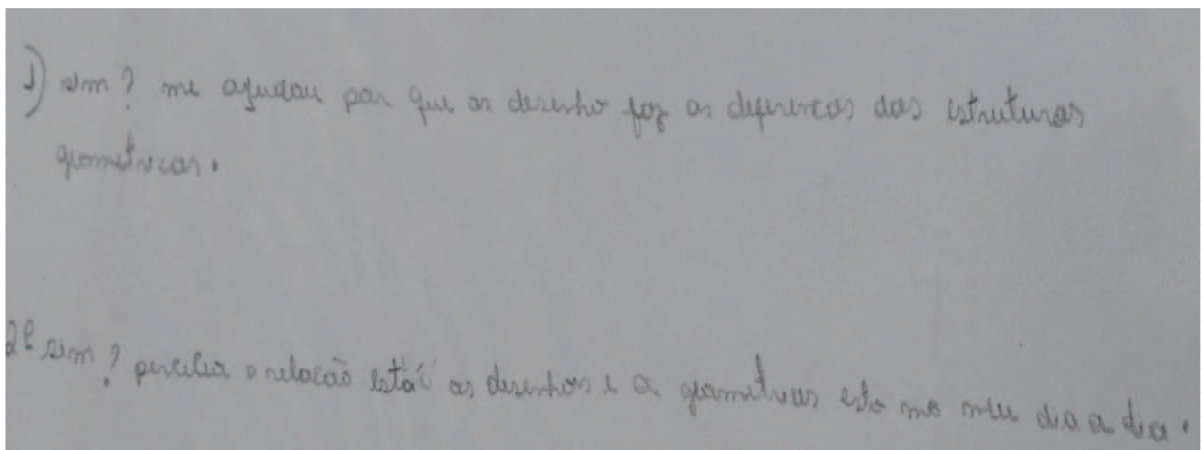 1) sim? me ajudou por que os desenho faz as diferencas das estruturas
geometricas.
2º sim? percebia a relacão está os desenhos e a geometricas esto no meu dia a dia.